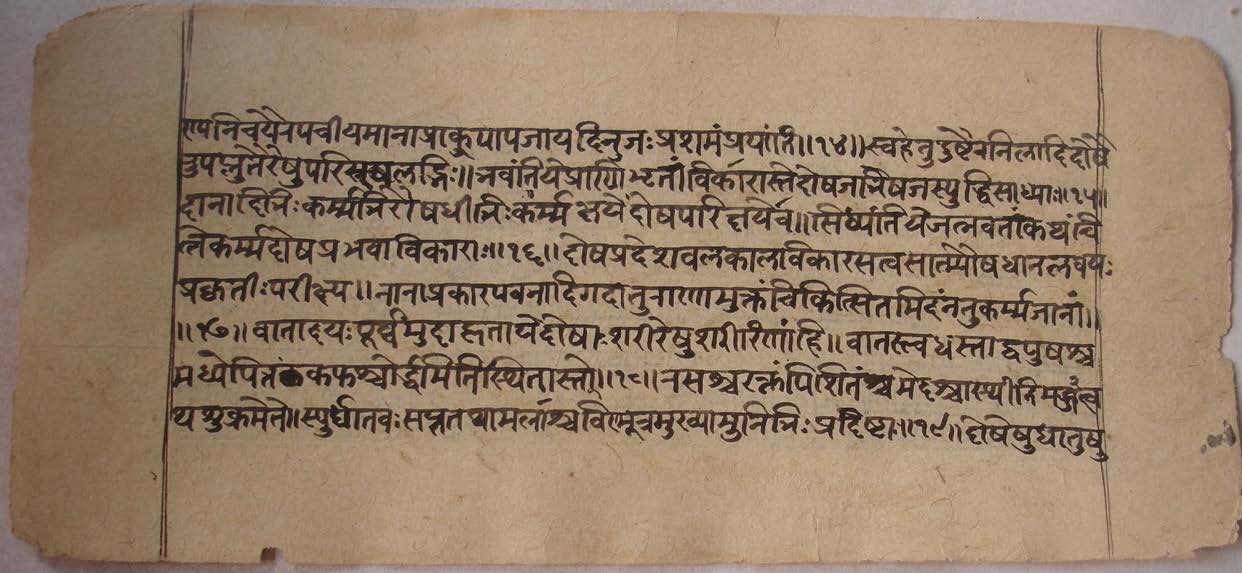 रूपनिचयैरुपचीयमानाप्राकूपापजायदिनुजःप्रशमंप्रयांति॥१४॥स्वहेतुदुष्टैरनिलादिदोषै
रुपप्लुतैरेषुपरिस्खलद्भिः॥भवंतियेप्राणिभृतांविकारास्तेदोषजाभेषजस्युद्धिसाध्याः॥१५॥
दानादिभिःकर्म्मभिरोषधीभिःकर्म्मक्षयेदोषपरिक्षयेच॥सिध्यंतियेजत्नवतांकथंचि
त्तेकर्म्मदोषप्रभवाविकाराः॥१६॥दोषप्रदेशवलकालविकारसत्वसात्म्यौषधानलवयः
प्रकृतीःपरीक्ष्य॥नानाप्रकारपवनादिगदातुराणामुक्तंचिकित्सितमिदंननुकर्म्मजानां॥
॥१७॥वातादयःपूर्वमुदाहृतायेदोषाःशरीरेषुशरीरिणांहि॥वातस्त्वधस्ताद्वपुषश्च
मध्येपित्तंकफश्चोर्द्धमितिस्थितास्ते॥१८॥रसश्चरक्तंपिशितंश्चमेदश्चास्थीतिमज्जंत्व
थशुक्रमेते॥स्युर्धातवःसप्ततथामलाश्चविण्मूत्रमुख्यामुनिभिःप्रदिष्टाः॥१९॥दोषेषुधातुषु